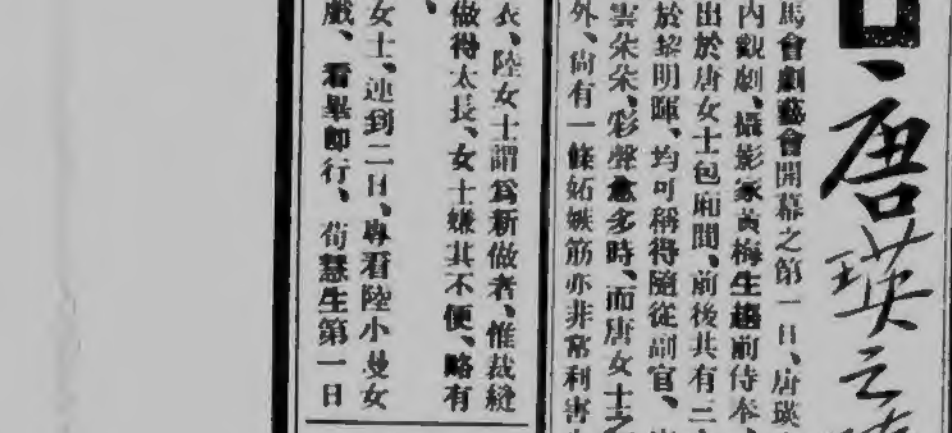 唐瑛之
馬會劇藝會開幕之第一日、唐瑛
內觀劇、攝影家黃梅生趨前侍奉、
出於唐女士包廂間、前後共有二
於黎明暉、均可稱得隨從副官、
雲朵朵、彩聲愈多時、而唐女士之
外、尙有一條妬嫉筋亦非常利害
衣、陸女士謂爲新做者、惟裁縫
做得太長、女士嫌其不便、略有
、
女士、連到二日、專看陸小曼女
戲、看畢卽行、荀慧生第一日